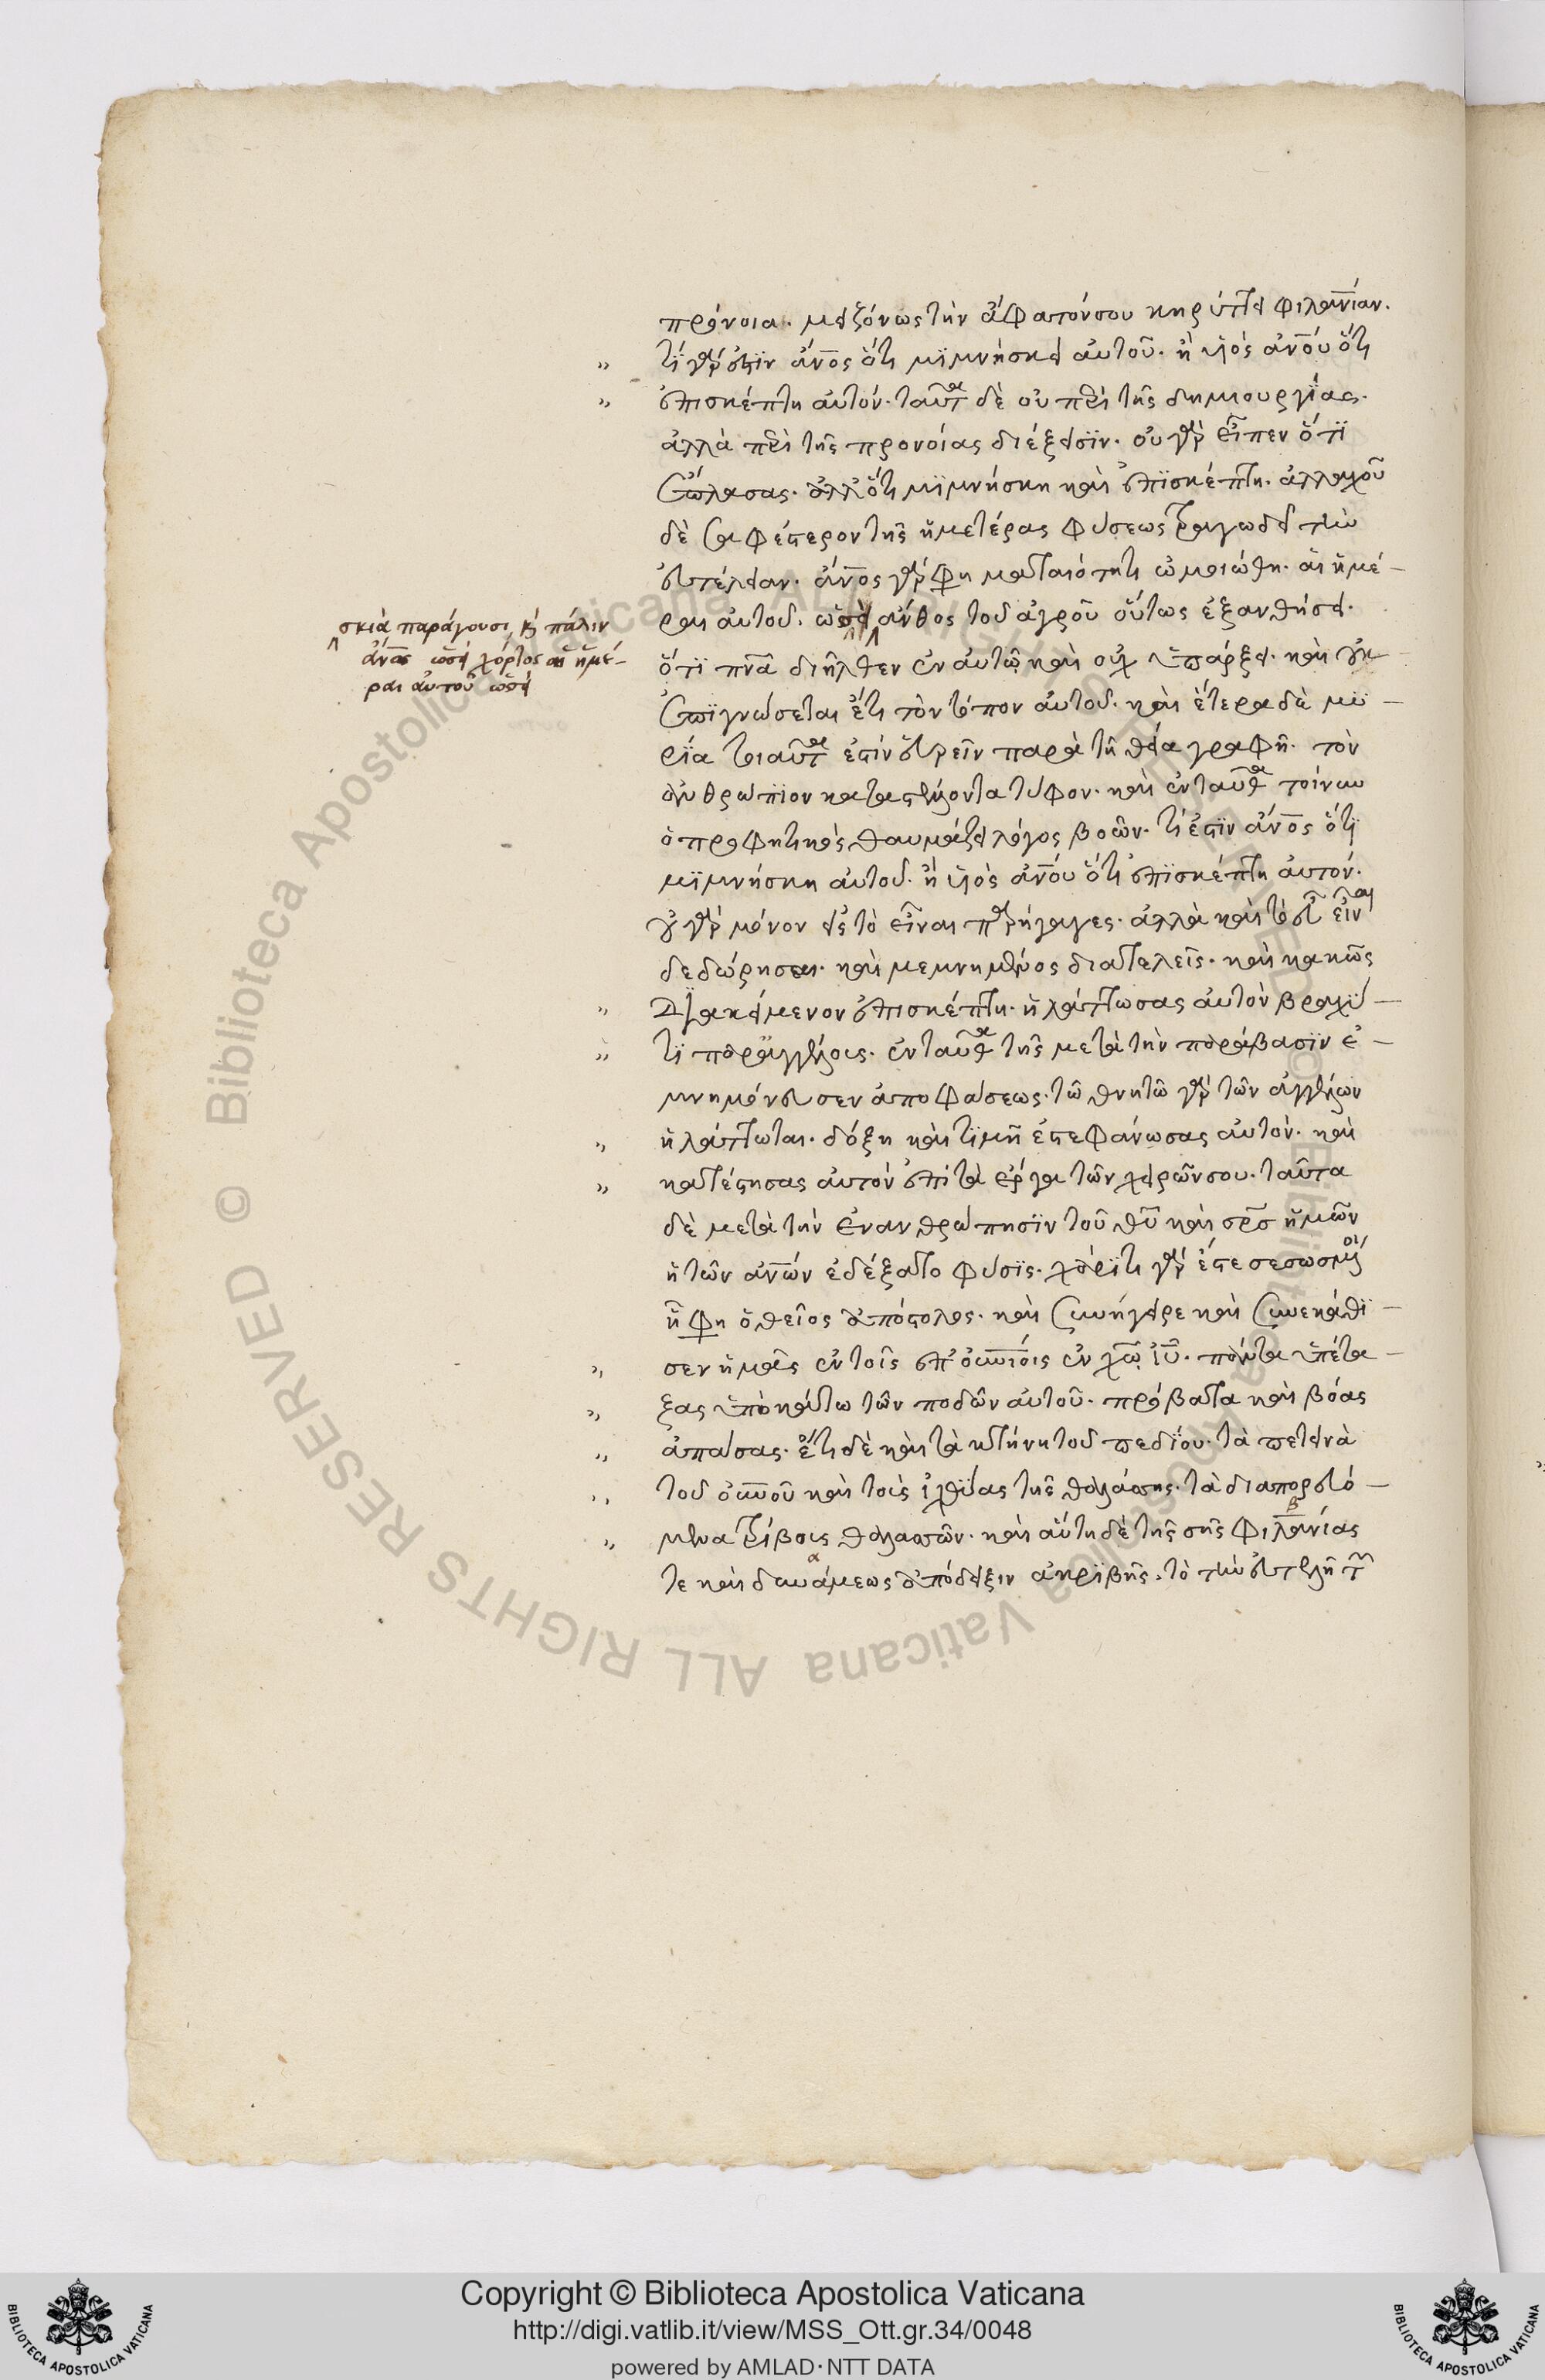 πρόνοια. μειζόνως τὴν ἄφατόν σου κηρύττει φιλανίαν.
τί γάρ ἐστϊν ἄνος ὅτι μϊμνήσκει αὐτοῦ. ἢ υἱὸς ἀνου ὅτι
ἐπισκέπτη αὐτόν. ταῦτα δὲ οὐ περὶ τῆς δημιουργίας.
ἀλλὰ περὶ τῆς προνοίας διέξεισϊν. οὐ γὰρ εἶπεν ὅτϊ
ἔπλασας. ἀλλ' ὅτι μϊμνήσκη καὶ ἐπϊσκέπτη. ἀλλαχοῦ
δὲ σαφέστερον τῆς ἡμετέρας φύσεως τραγωδεῖ τὴν
εὐτέλειαν. ἄνος γάρ φη ματαιότητι ὡμοιώθη. αἱ ἡμέ-
ραι αὐτοῦ. ὡσεὶ ἄνθος τοῦ ἀγροῦ οὕτως ἐξανθήσει.
σκιὰ παράγουσι, καὶ πάλιν
ἄνος ὡσεὶ χόρτος αἱ ἡμέ-
ραι αὐτοῦ ὡσεὶ
ὅτϊ πνα διῆλθεν ἐν αὐτῷ καὶ οὐχ ὑπάρξει. καὶ οὐκ
ἐπϊγνώσεται ἔτι τὸν τόπον αὐτοῦ. καὶ ἕτερα δὲ μυ-
ρΐα τοιαῦτα ἐστὶν εὑρεῖν παρὰ τῆ θεία γραφῆ. τὸν
ἀνθρώπϊον καταστέλλοντα τύφον. καὶ ἐνταῦθα τοίνυν
ὁ προφητικὸς θαυμάζει λόγος βοῶν. τί ἐστϊν ἄνος ὅτϊ
μϊμνήσκη αὐτοῦ. ἢ υἱὸς ἀνου ὅτι ἐπϊσκέπτη αὐτόν.
οὐ γὰρ μόνον εἰς τὸ εἶναι παρήγαγες. ἀλλὰ καὶ τὸ εὖ εἶναι
δεδώρησαι. καὶ μεμνημένος διατελεῖς. καὶ κακῶς
διακείμενον ἐπισκέπτη. ἠλάττωσας αὐτὸν βραχύ-
τϊ παρ' ἀγγέλους. ἐνταῦθα τῆς μετὰ τὴν παράβασϊν ἐ-
μνημόνευσεν ἀποφάσεως. τῶ θνητῶ γὰρ τῶν ἀγγέλων
ἠλάττωται. δόξη καὶ τϊμῆ ἐστεφάνωσας αὐτόν. καὶ
κατέστησας αὐτὸν ἐπὶ τὰ ἔργα τῶν χειρῶν σου. ταῦτα
δὲ μετὰ τὴν ἐνανθρώπησϊν τοῦ θυ καὶ σρς ἡμῶν
ἡ τῶν ἀνων ἐδέξατο φύσϊς. χάρϊτι γάρ ἐστε σεσωσμένοι
ἧ φη ὁ θεῖος ἀπόστολος. καὶ συνήγειρε καὶ συνεκάθϊ-
σεν ἡμᾶς ἐν τοῖς ἐπουνίοις ἐν χω ιυ. πάντα ὑπέτα-
ξας ὑποκάτω τῶν ποδῶν αὐτοῦ. πρόβατα καὶ βόας
ἁπάσας. ἔτι δὲ καὶ τὰ κτήνη τοῦ πεδΐου. τὰ πετεινὰ
τοῦ οὐνοῦ καὶ τοὺς ἰχθύας τῆς θαλάσσης. τὰ διαπορευό-
μενα τρίβους θαλασσῶν. καὶ αὕτη δὲ τῆς σῆς φιλανίας
τε καὶ δυνάμεως ἀπόδειξιν ἀκρϊβῆς. τὸ τὴν εὐτελῆ τ